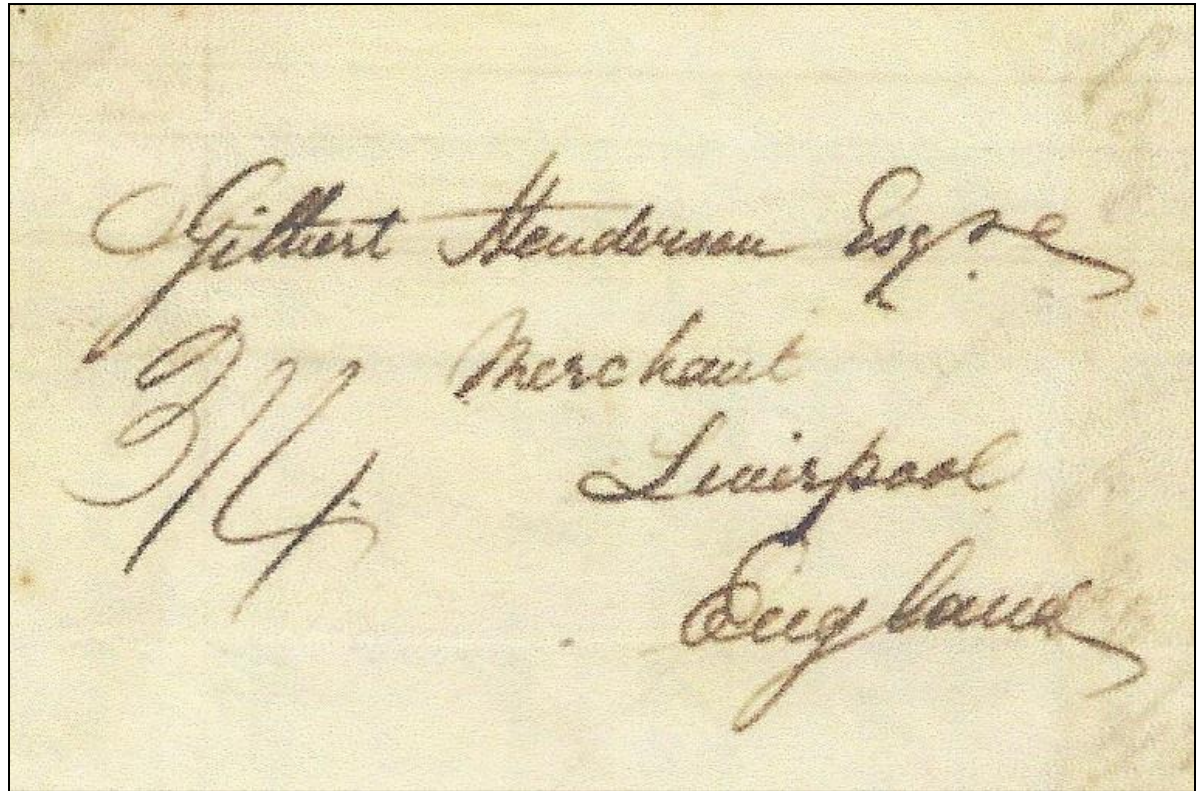 Gilbert Henderson Esqre
Merchant
3/4
Liverpool
England